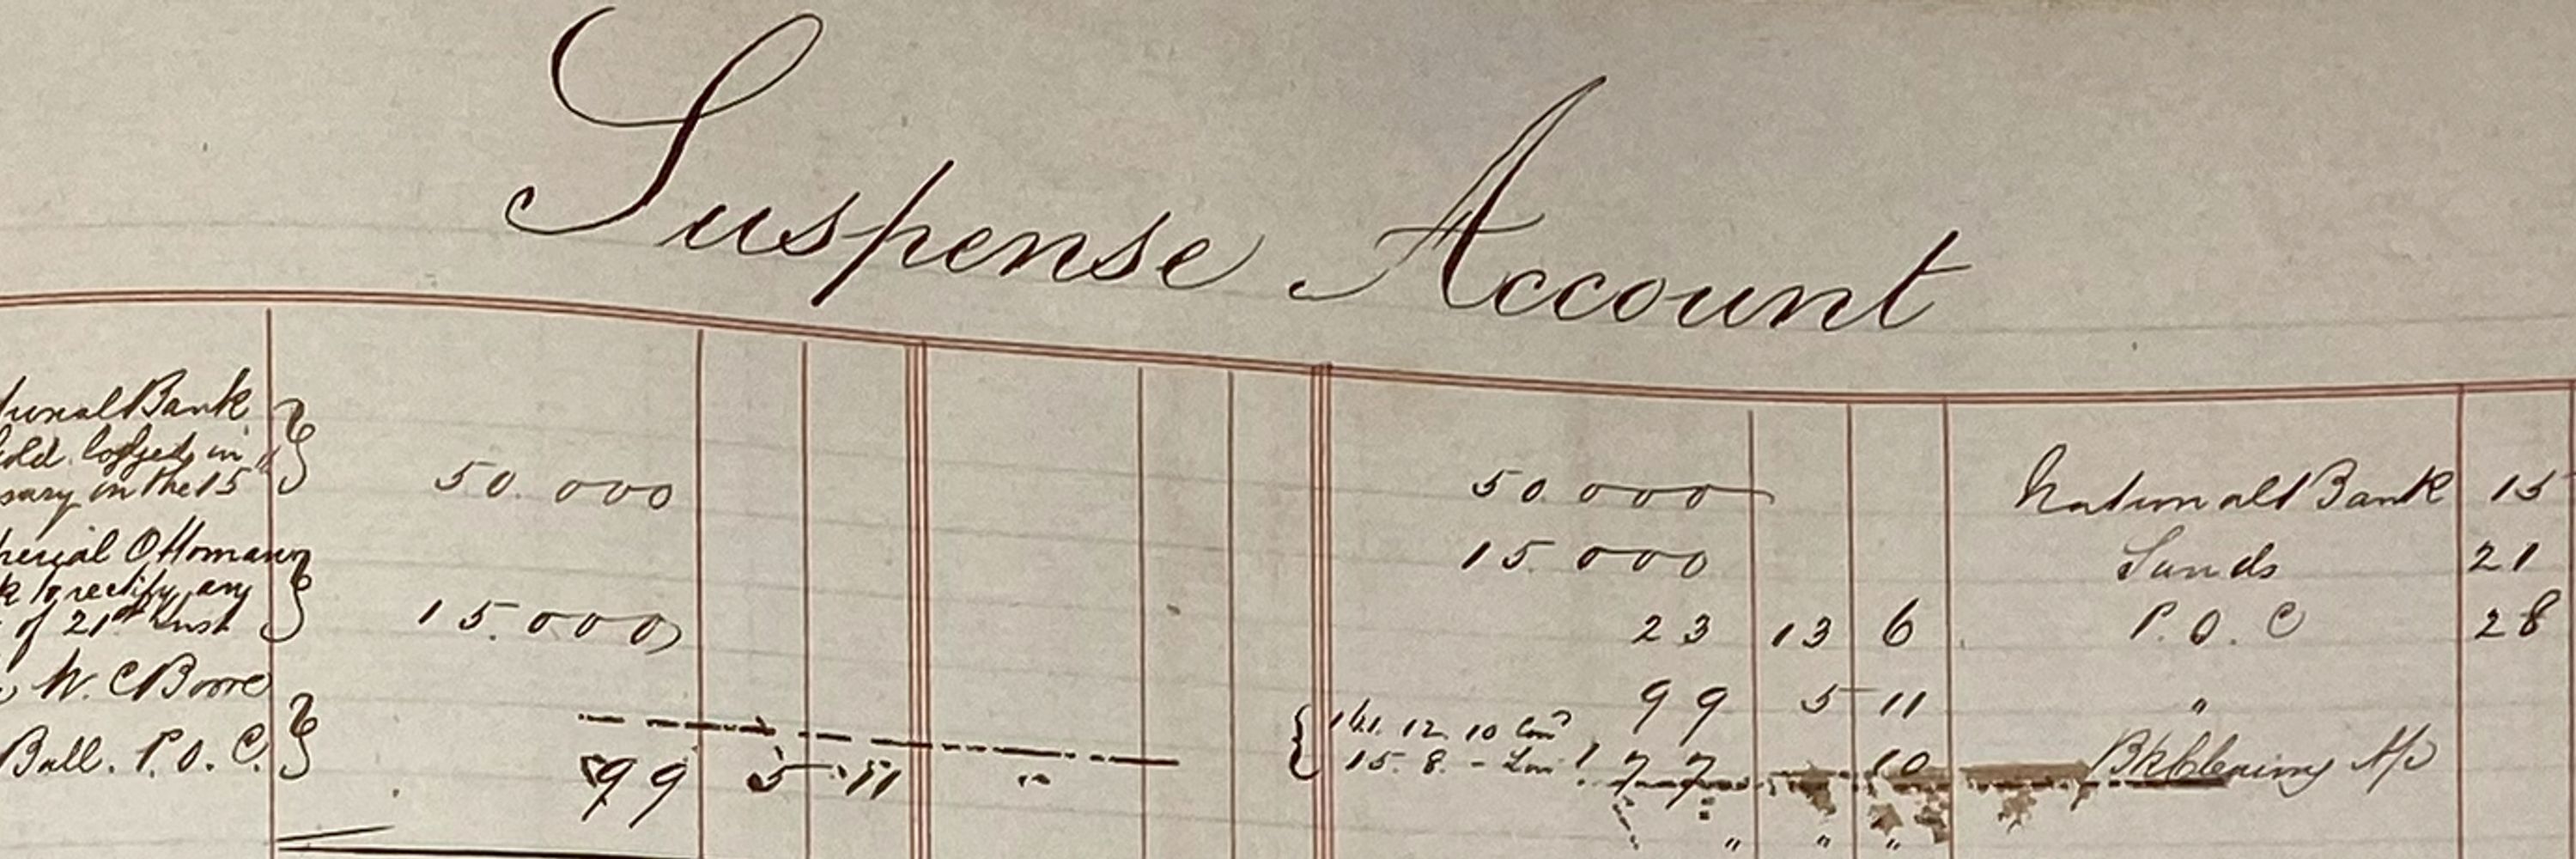 Suspense Account
Bank
lodged in
in the 15th
50.000
Ottoman
to rectify any
of 21st Inst
15.000
W. C Boore
Ball. P.O.C.
99 5 11 "
50.000 National Bank 15
15.000 Sunds 21
23 13 6 P.O.C 28
99 5 11 "
141. 12. 10
15. 8. - 77 10 Bk Clearing A/c
" " "